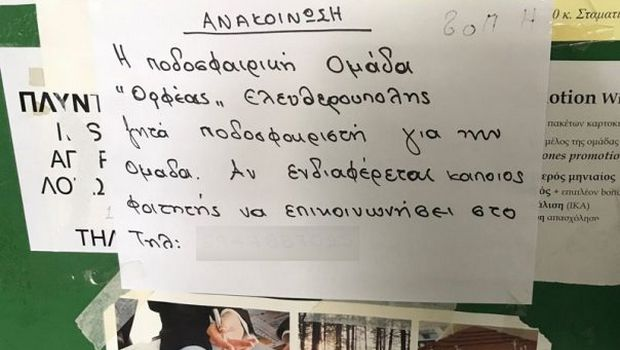 ΑΝΑΚΟΙΝΩΣΗ
Η ποδοσφαιρική Ομάδα
"Ορφέας" Ελευθερουπολης
ζητά ποδοσφαιριστή για την
ομαδα. Αν ενδιαφέρεται καποιος
φοιτητής να επικοινωνήσει στο
Τηλ:
0 κ. Σταματι
ΠΛΥΝΤ
ΤΗΛ
otion Wi
πακέτων καρτοκι
μέλος της ομάδας
ones promotio
ερός μηνιαίος
ός + επιπλέον bonu
άλιση (ΙΚΑ)
η απασχόληση